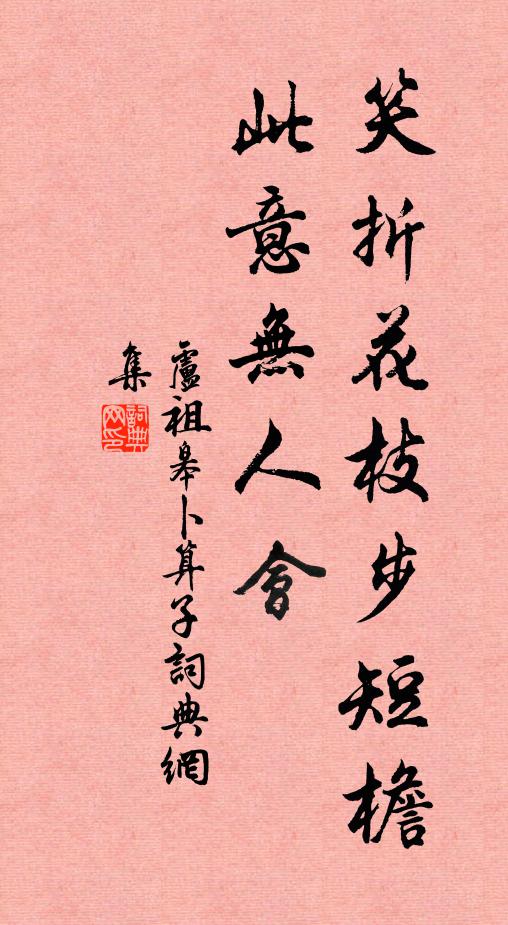 笑折花枝步短檐
此意無人會
盧祖皋卜算子詞典網
集
詞典
网印